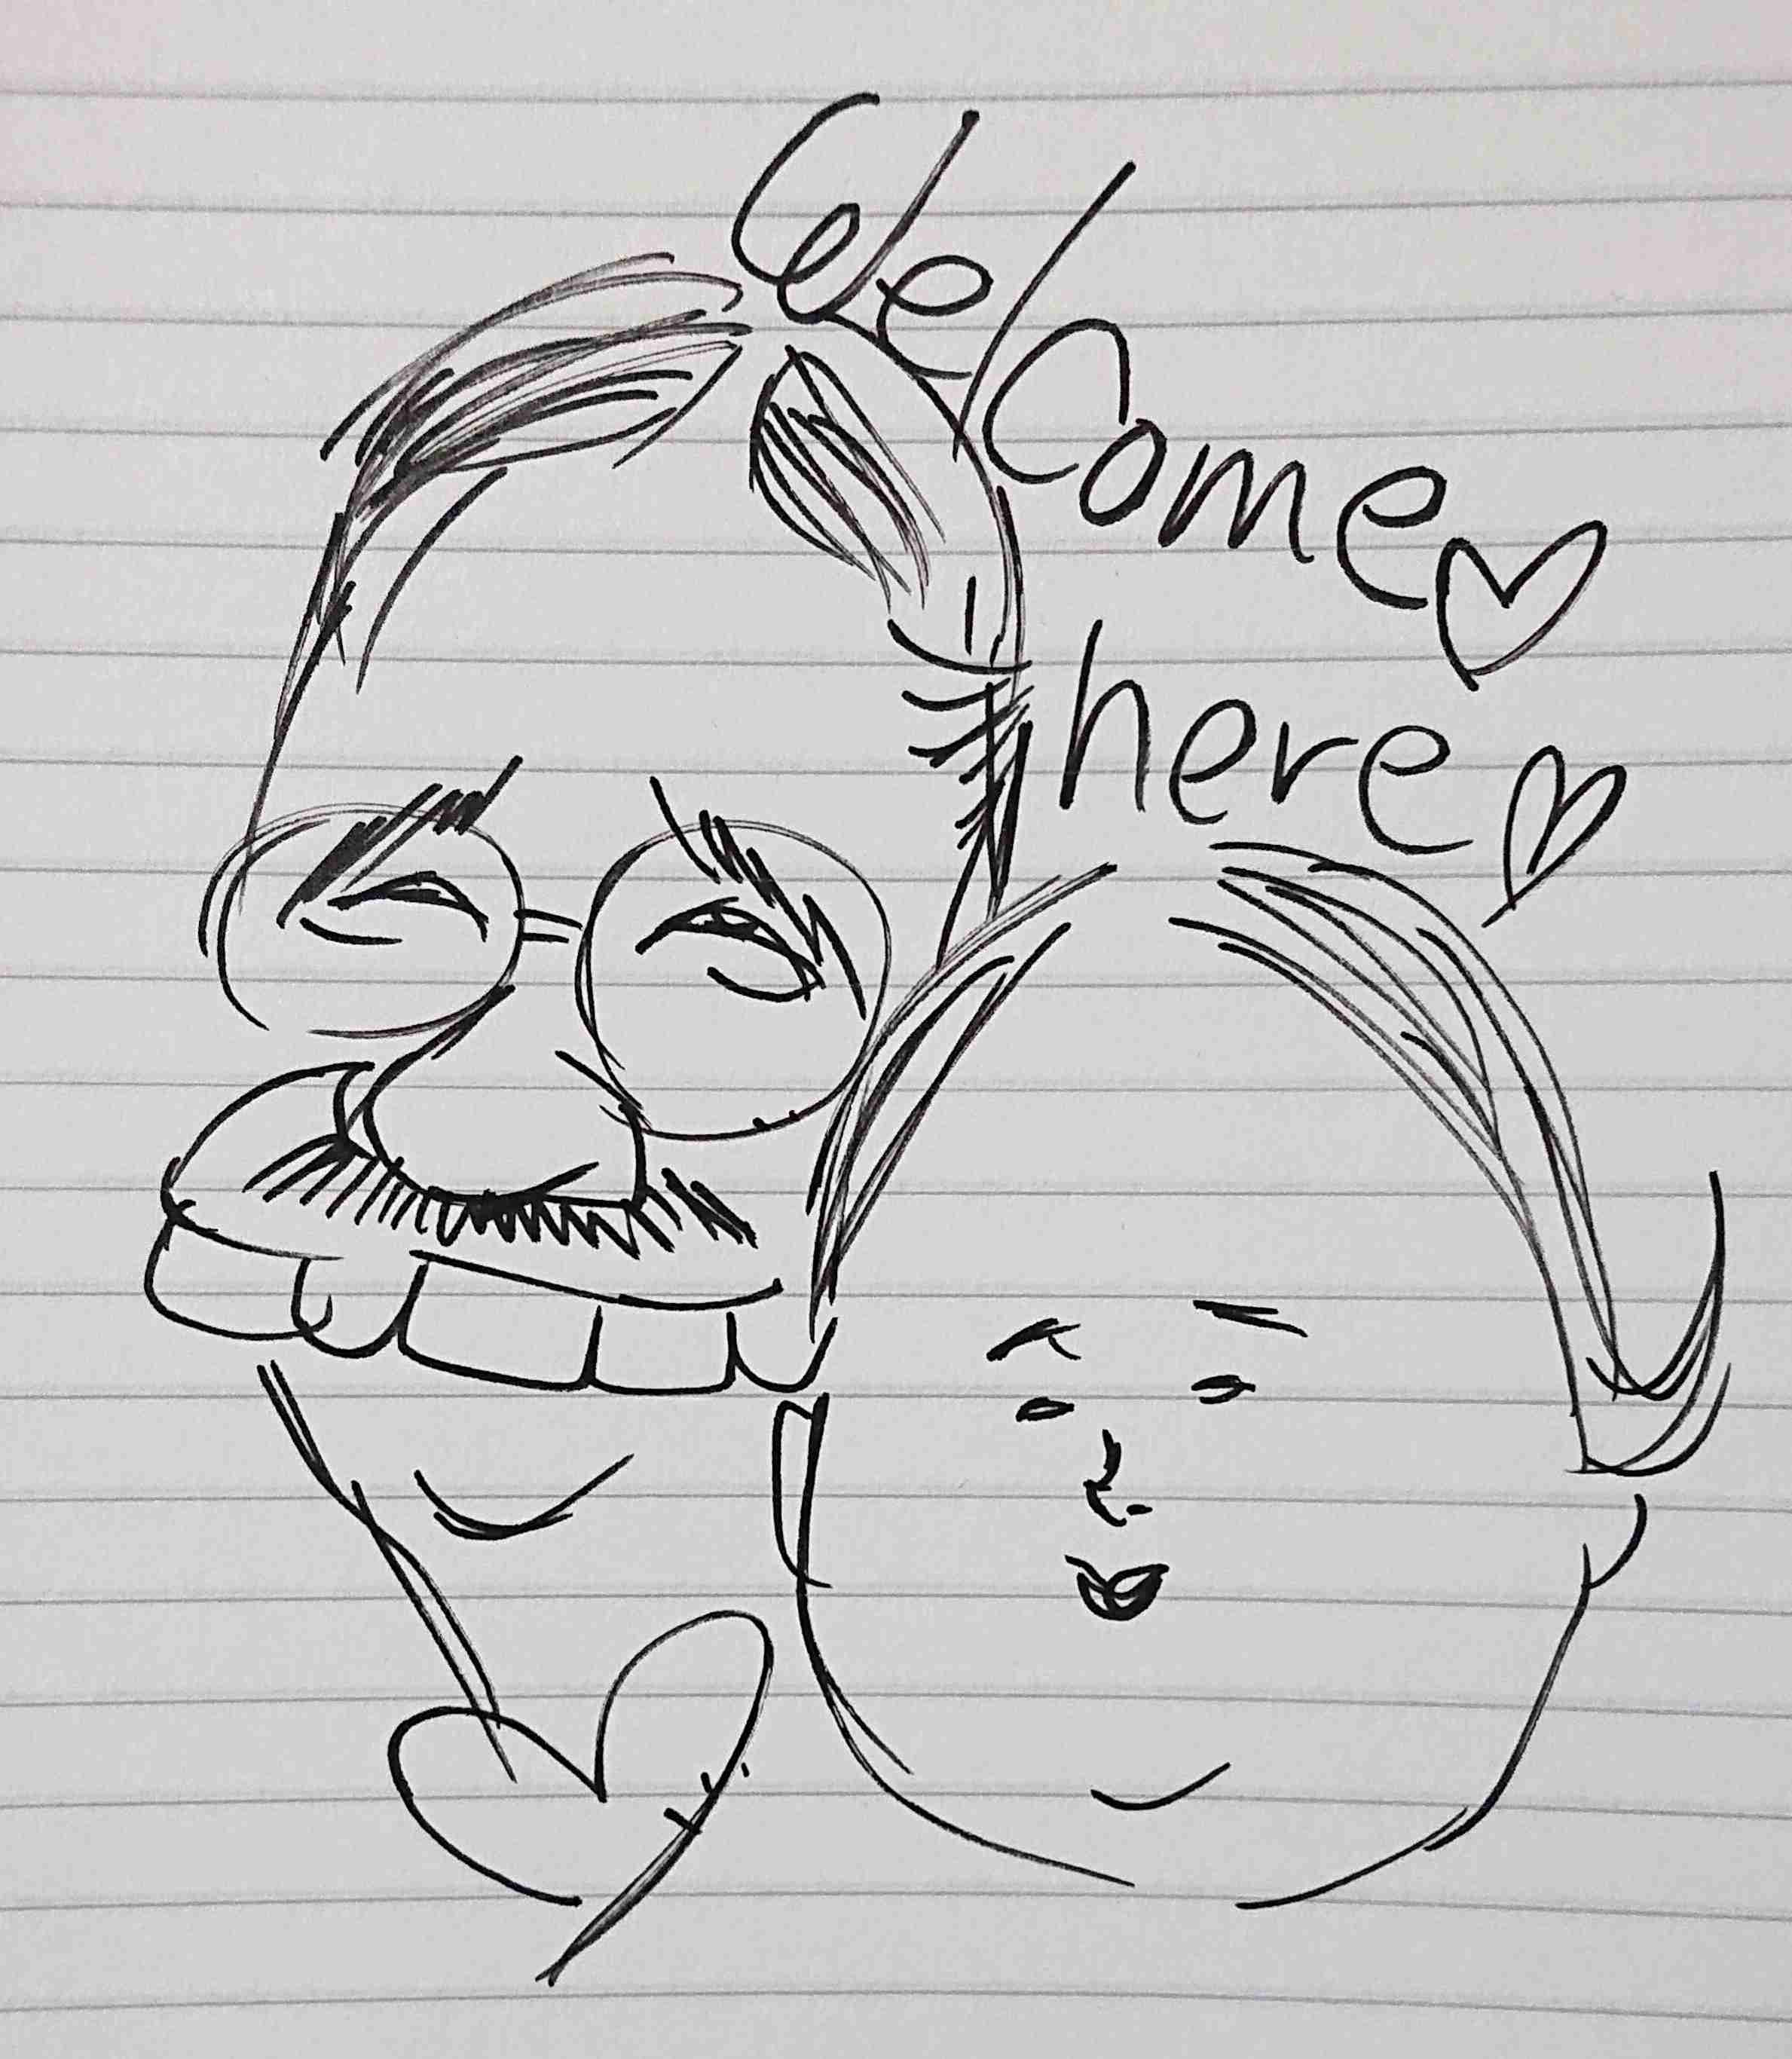 Welcome♡
here♡